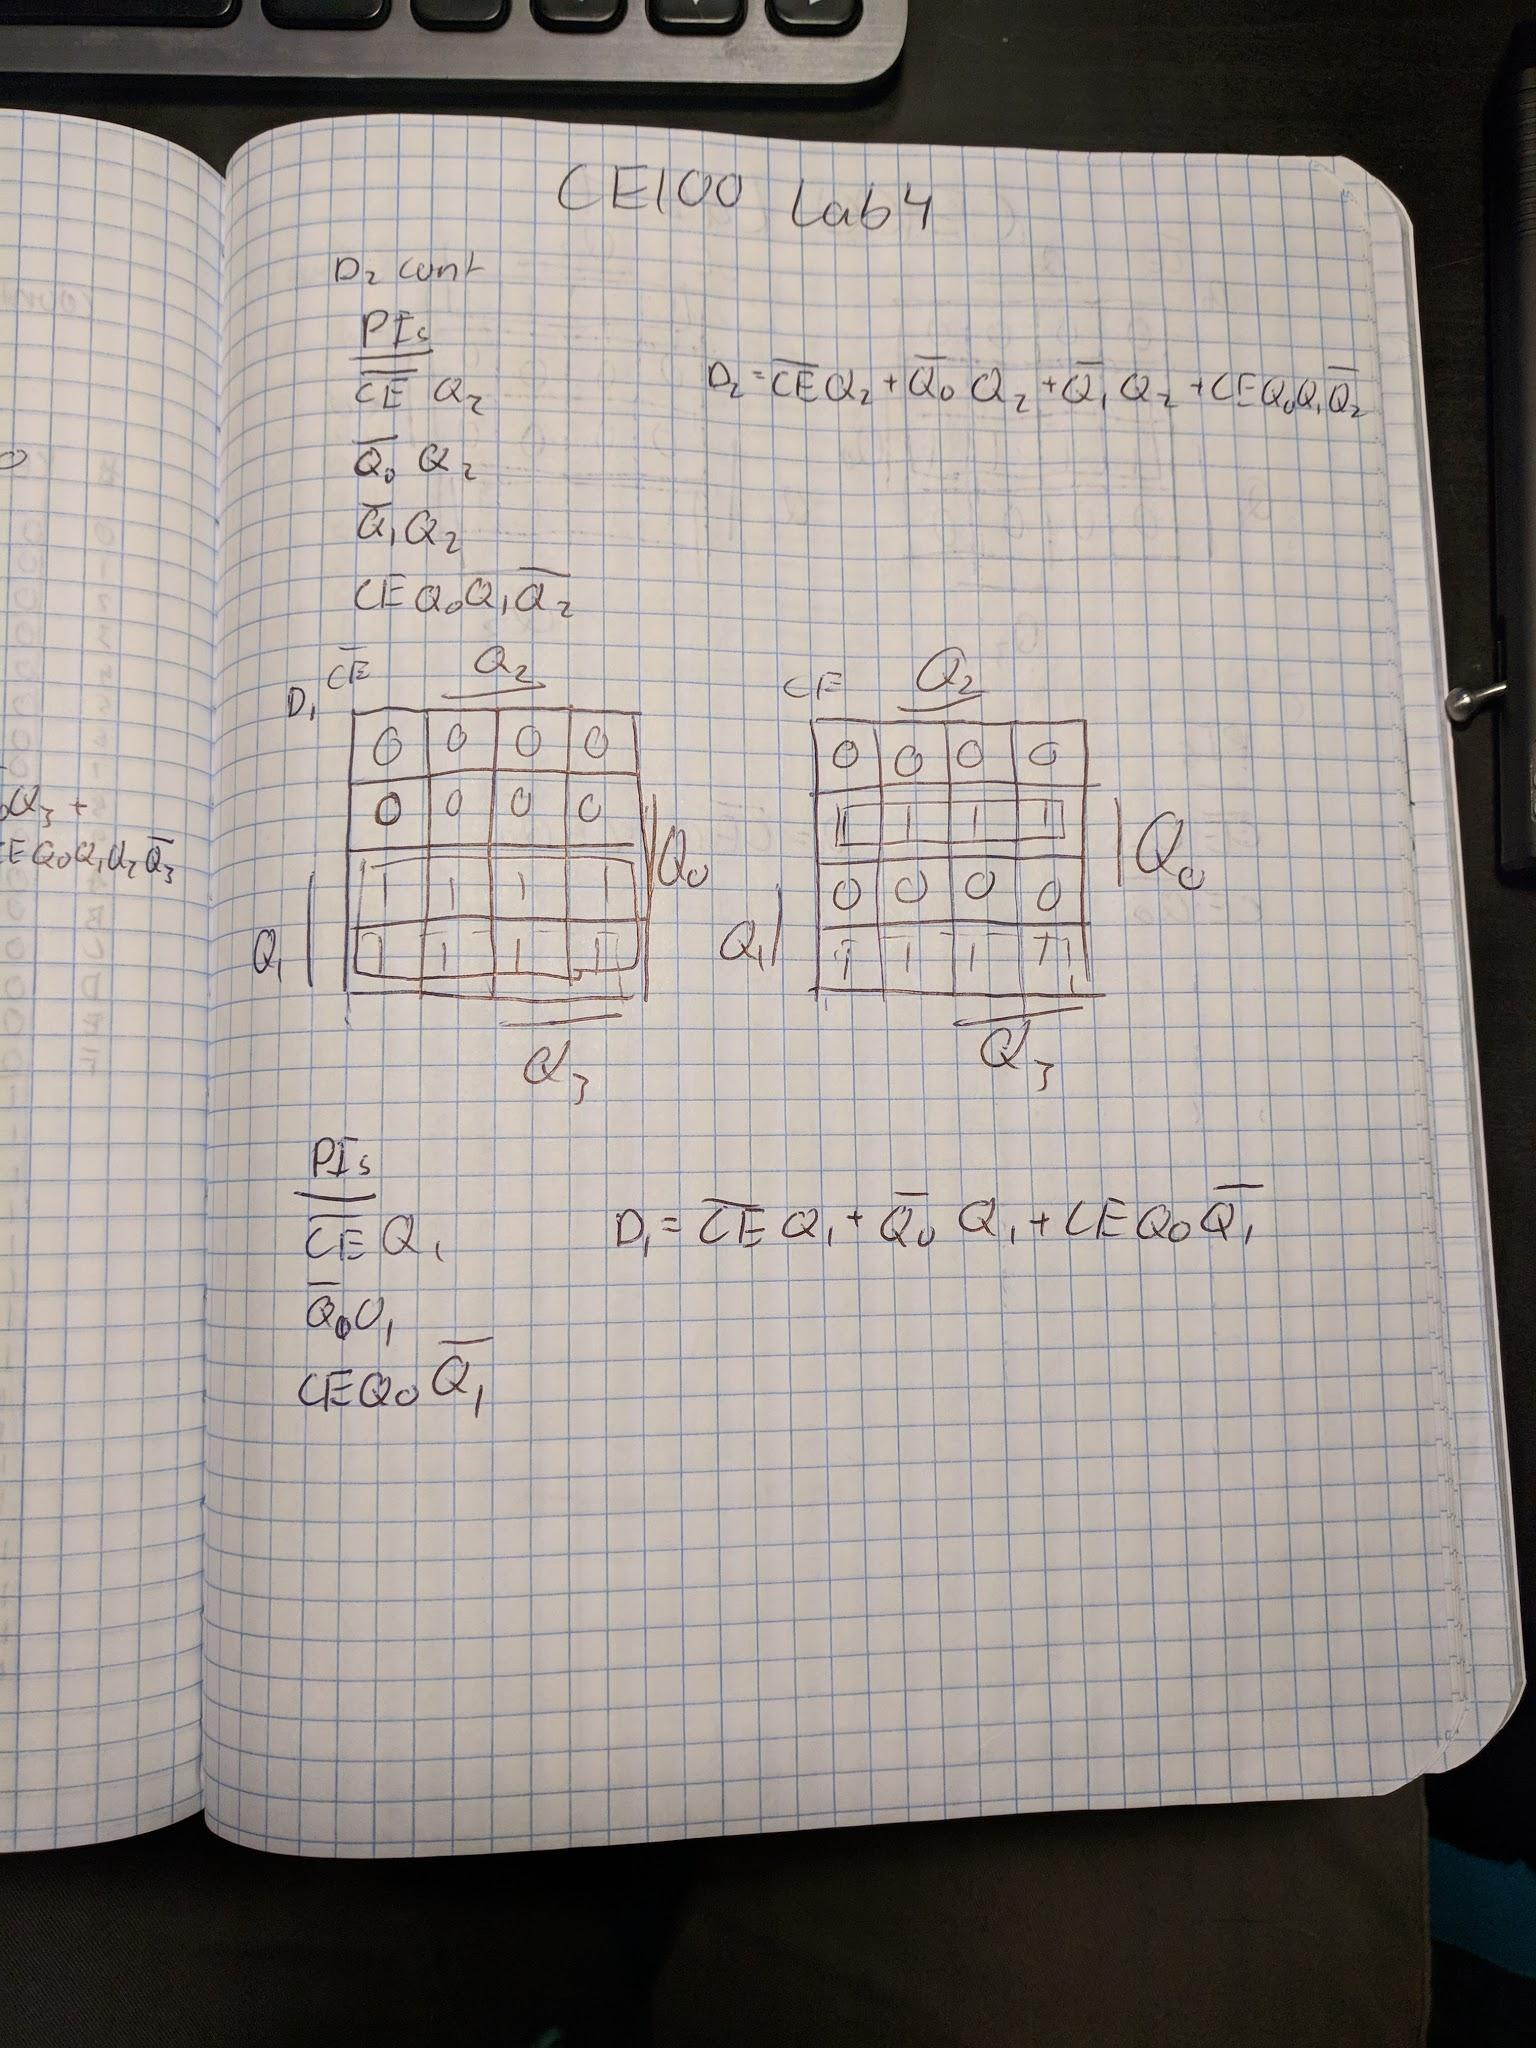 CE100 Lab 4
D₂ cont
PIs
C̅E̅ Q₂
Q̅₀ Q₂
Q̅₁Q₂
CEQ₀Q₁Q̅₂
D₂ = C̅E̅Q₂ + Q̅₀ Q₂ + Q̅₁ Q₂ + CEQ₀Q₁Q̅₂
D₁ C̅E̅ Q₂
0 0 0 0
0 0 0 0
1 1 1 1
1 1 1 1
Q₀
Q₁
Q₃
CE Q₂
0 0 0 0
1 1 1 1
0 0 0 0
1 1 1 1
Q₀
Q₁
Q₃
PIs
C̅E̅Q₁
Q̅₀Q₁
CEQ₀Q̅₁
D₁ = C̅E̅Q₁ + Q̅₀ Q₁ + CEQ₀Q̅₁
Q₃ +
EQ₀Q₁Q₂Q̅₃